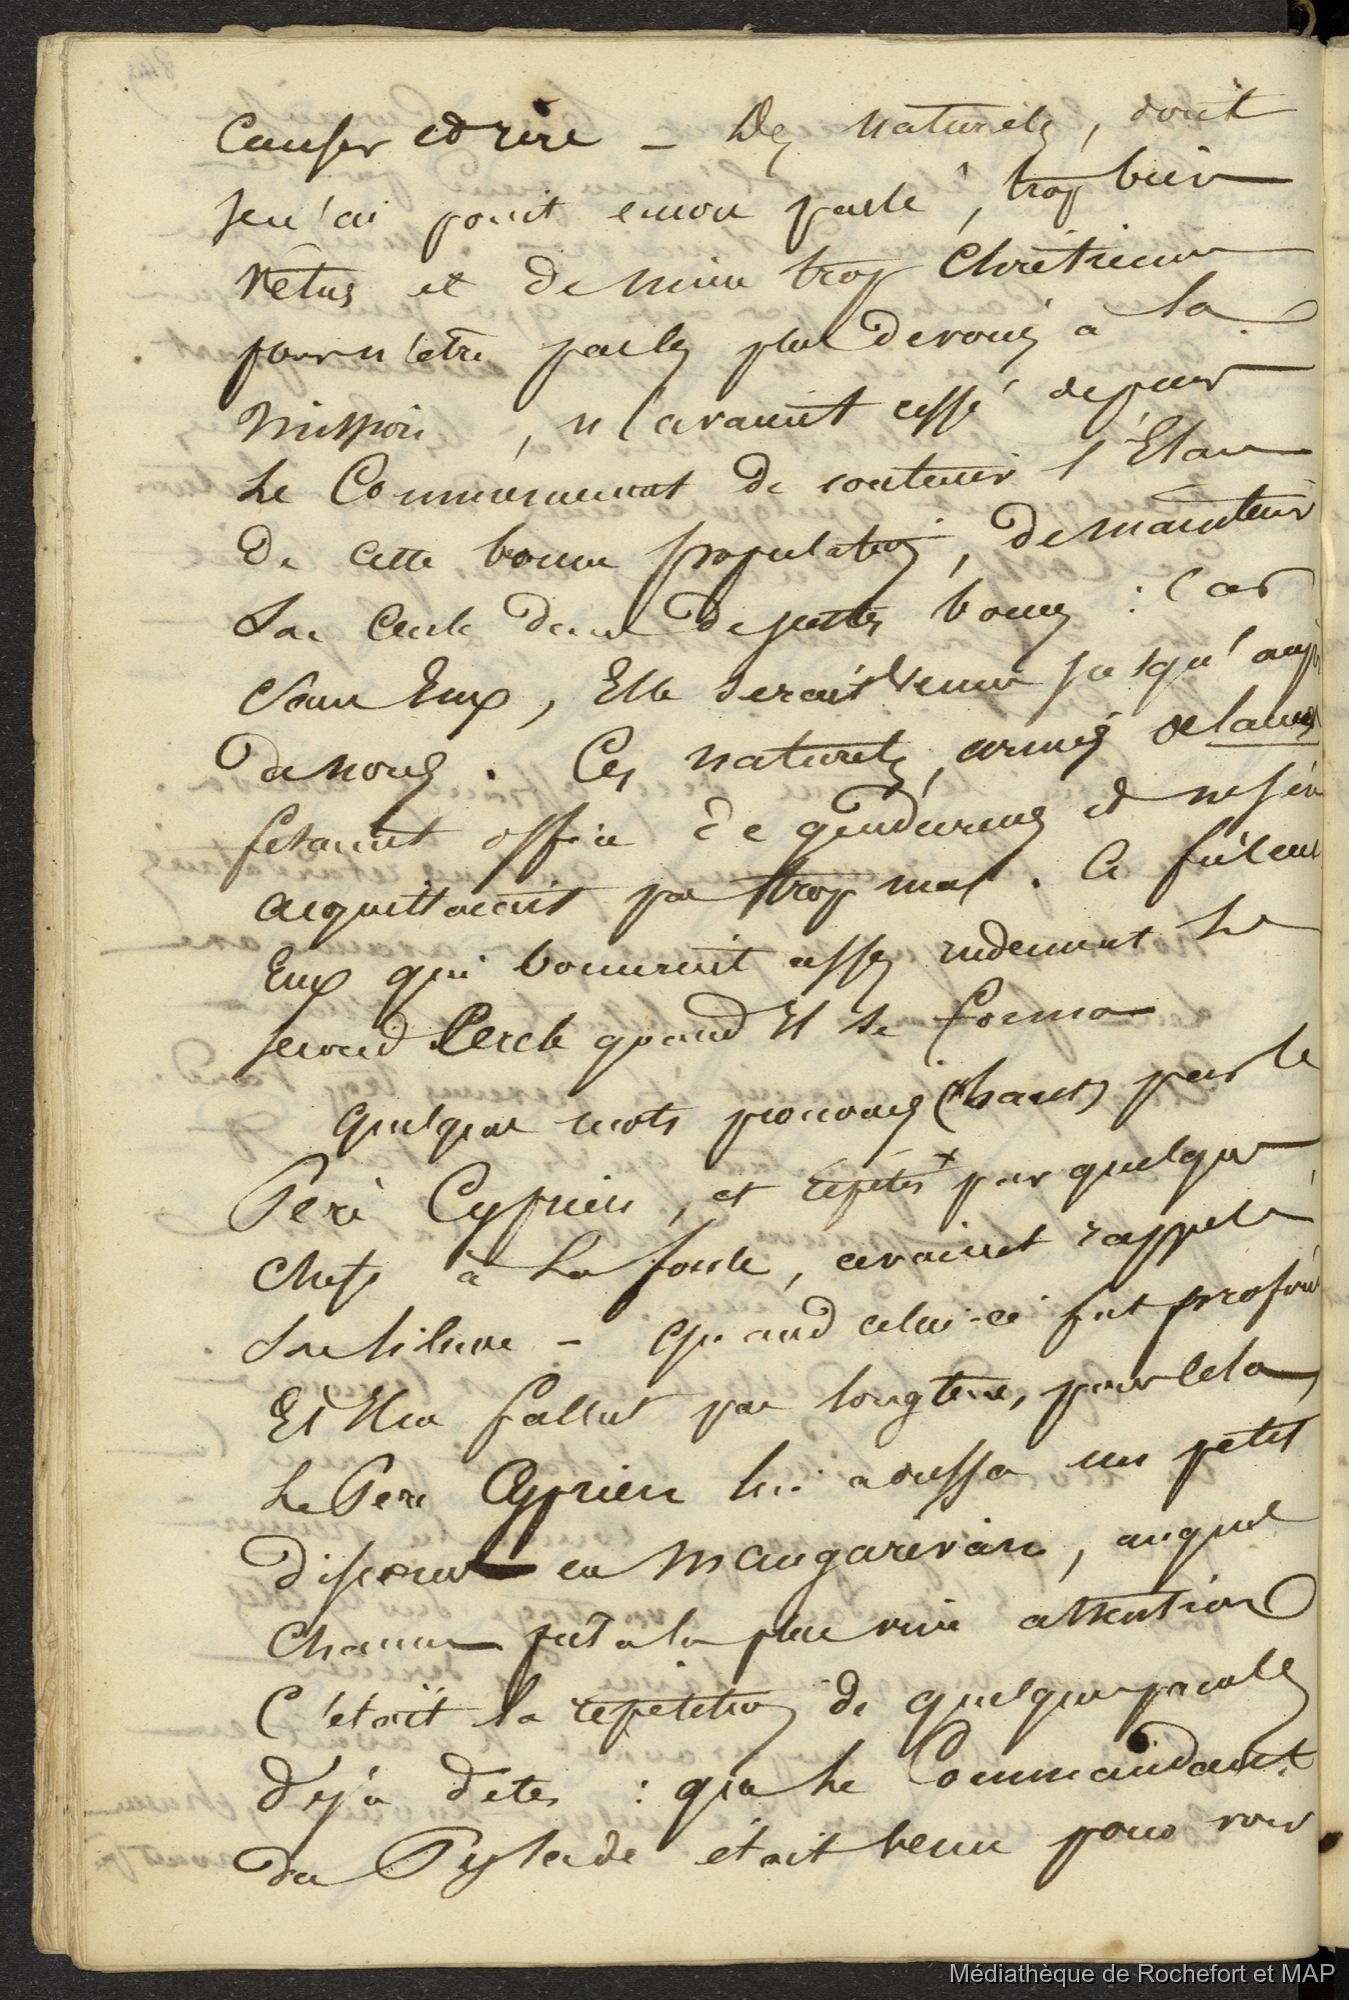 Causer et rire – Des naturels, dont
je n'ai point encore parlé, trop bien
vêtus et de mine trop Chrétienne
pour n'être pas les plus dévoués à la
mission, n'avaient cessé depuis
le Commencement de contenir l'Elan
de cette bonne population, de maintenir
Son Cercle dans de justes bornes : Car
Sans Eux, Elle serait venue jusqu'auprès
de nous. Ces naturels, armés de lances
fesaient office de gendarmes et ne s'en
acquittaient pas trop mal. Ce fut
Eux qui bornèrent assez rudement le
second Cercle quand Il se forma
quelques mots prononcés (hauts) par le
Père Cyprien, et répétés x par quelques
Chefs à la foule, avaient rappelé
Le Silence – quand celui-ci fut profond
Et Il ne fallut pas longtems, pour cela,
Le Père Cyprien lui adressa un petit
discours en Mangarévien, auquel
Chacun prêta la plus vive attention
C'était la répétition de quelques paroles
déjà dites : que le Commandant
du Pylade était venu pour voir
Médiathèque de Rochefort et MAP